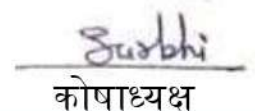 Surbhi
कोषाध्यक्ष